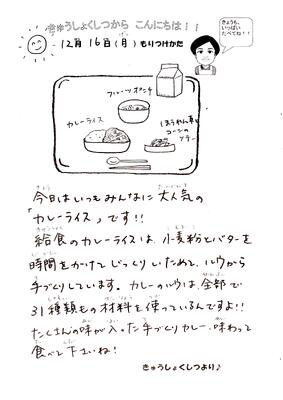 きゅうしょくしつから こんにちは!!
きょうも、
いっぱい
たべてね!!
12月 16日(月) もりつけかた
フルーツポンチ
カレーライス
ほうれん草と
コーンの
ソテー
今日はいつもみんなに大人気の
「カレーライス」です!!
給食のカレーライスは、小麦粉とバターを
時間をかけてじっくりいためて、ルウから
手づくりしています。カレーのルウは、全部で
31種類もの材料を使っているんですよ!!
たくさんの味が入った手づくりカレー、味わって
食べて下さいね!
きゅうしょくしつより♪